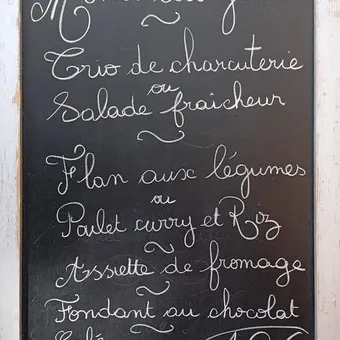 Trio de charcuterie
ou
Salade fraîcheur
Flan aux légumes
ou
Poulet curry et Riz
Assiette de fromage
Fondant au chocolat